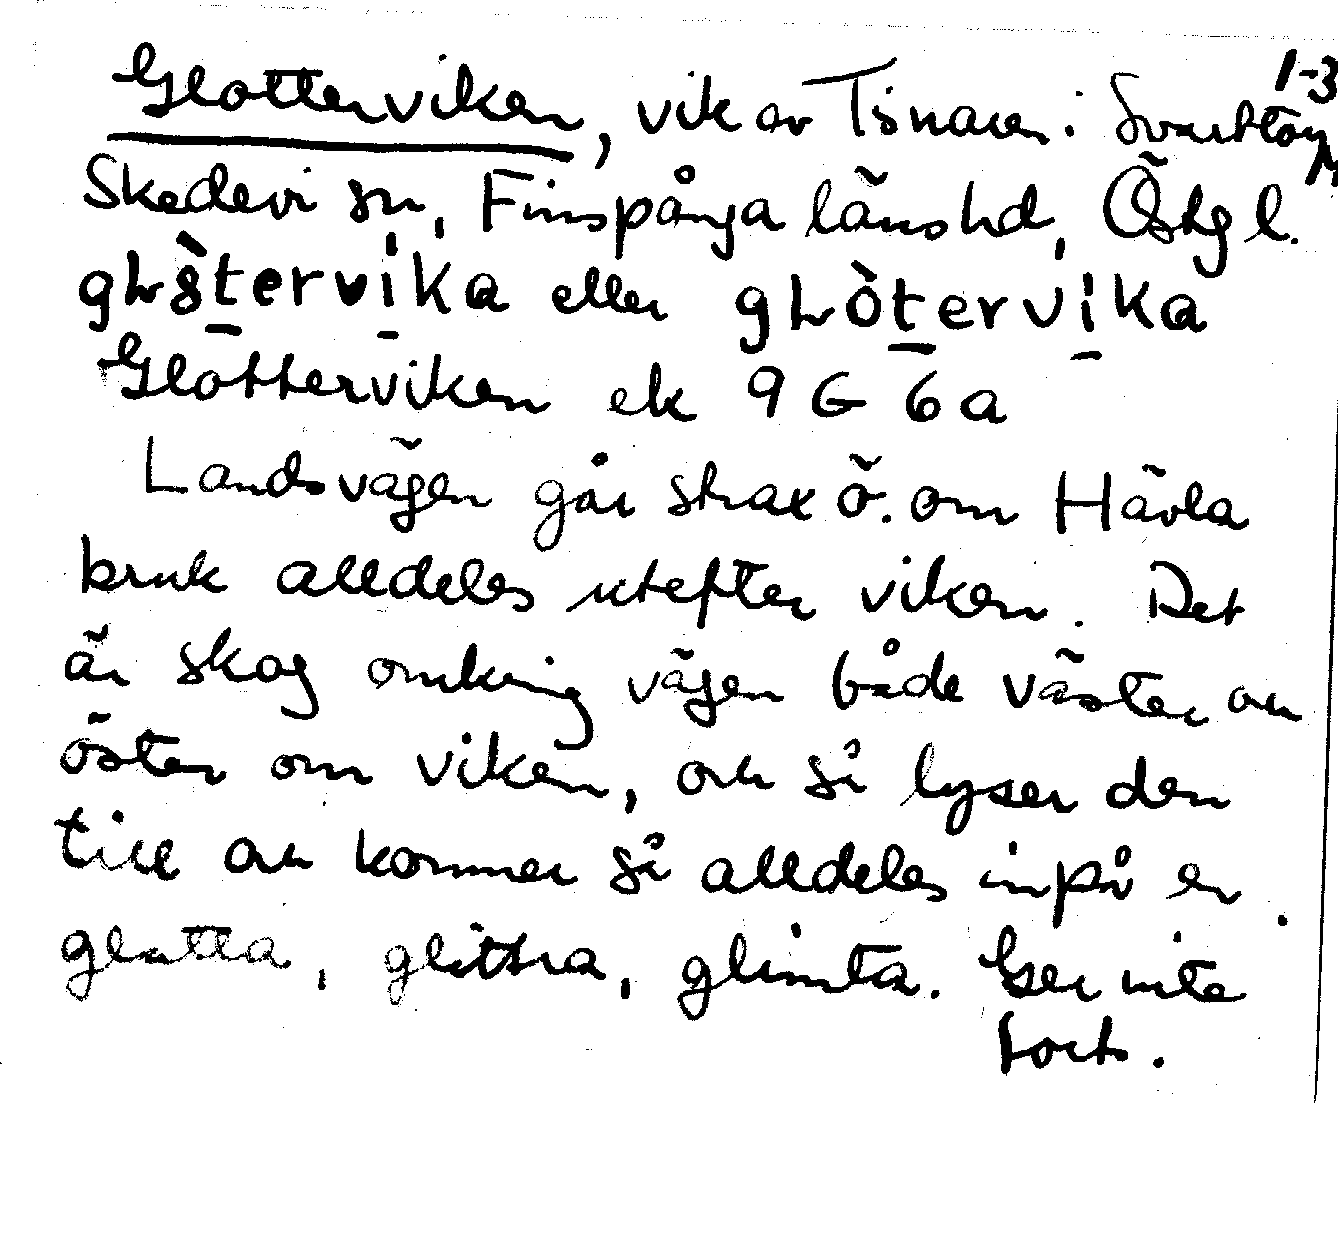 1-3
Glotterviken, vik av Tisnaren i Svarttorp
Skedevi sn, Finspånga länshd, Östg l.
eller
Glotterviken ek 9 G 6 a
Landsvägen går strax ö. om Hävla
bruk alldeles utefter viken. Det
är skog omkring vägen både väster och
öster om viken, och så lyser den
till och kommer så alldeles inpå en.
glatta, glittra, glimta. Ger inte
bort.